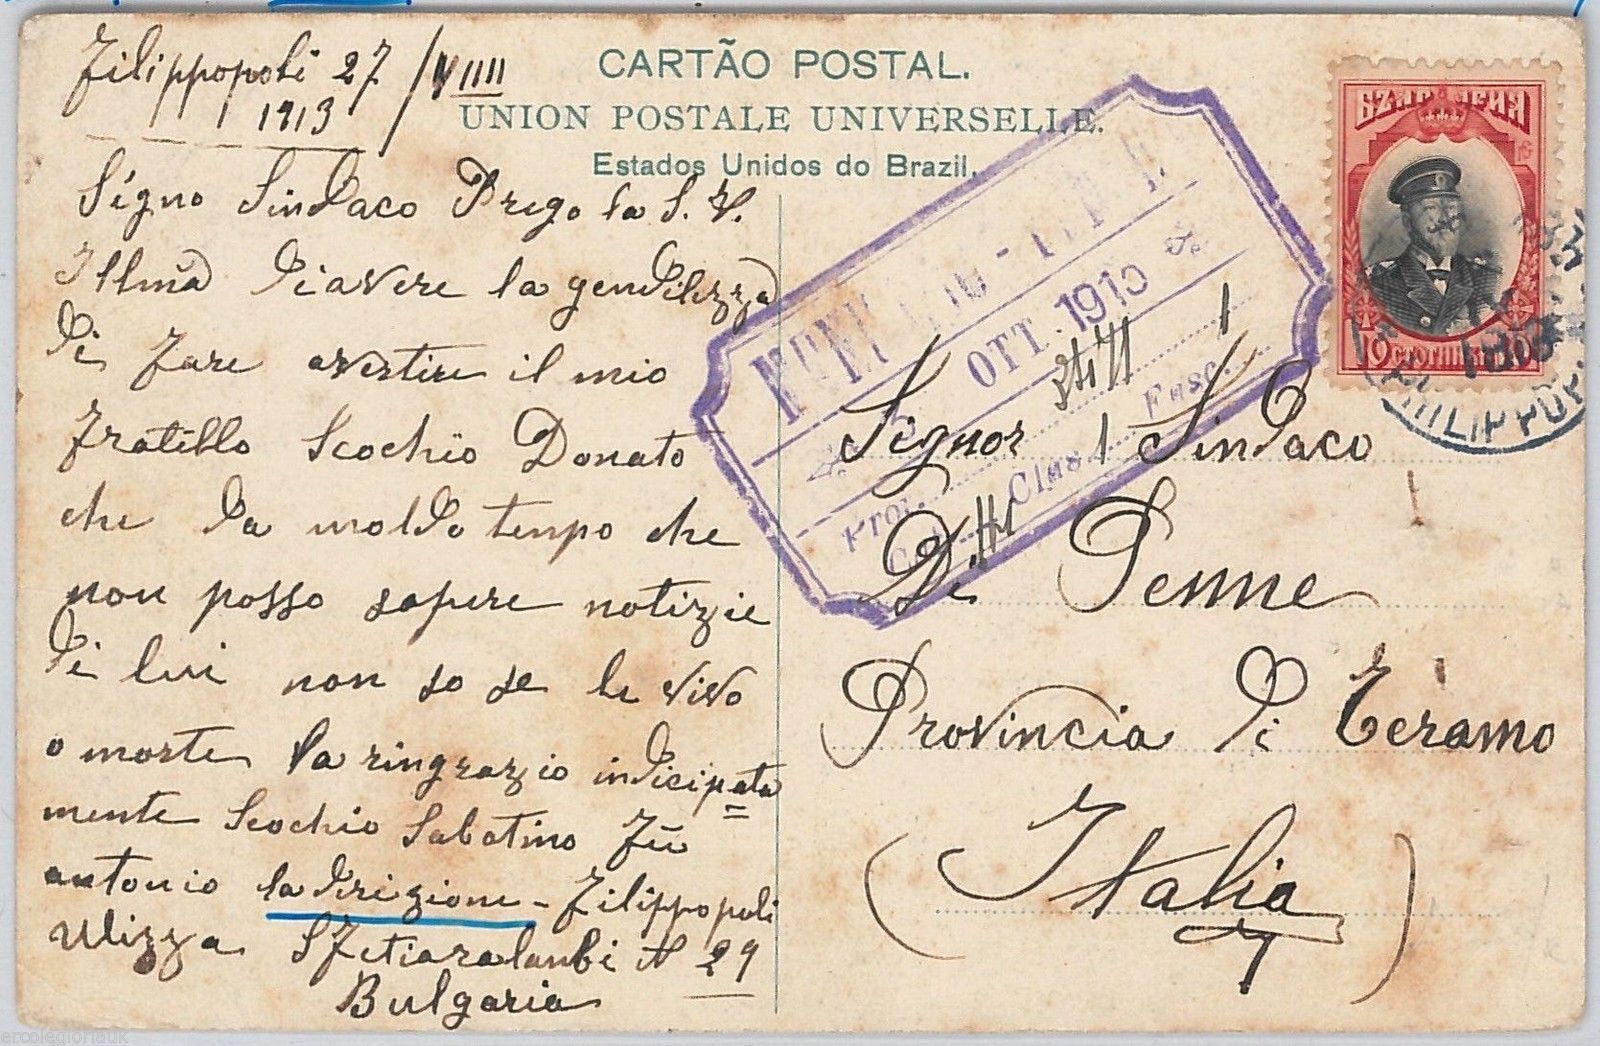 Filippopoli 27/VIIII
1913
CARTÃO POSTAL.
UNION POSTALE UNIVERSELLE.
Estados Unidos do Brazil.
Signo Sindaco Prego la S. V.
Illma di avere la gendilezza
di fare avertire il mio
Fratello Scochio Donato
che da moldo tempo che
non posso sapere notizie
di lui non so se le vivo
o morte la ringrazzio indicipata
mente Scochio Sabatino Fù
antonio la drizione - Filippopoli
Ulizza Sfetiaralanbi N 29
Bulgaria
OTT. 1913
Prot. Clas. Fasc.
Signor Sindaco
Di Penne
Provincia di Teramo
(Italia)
10 СТОТИНКИ 10
PHILIPPOP
ercolegloriauk